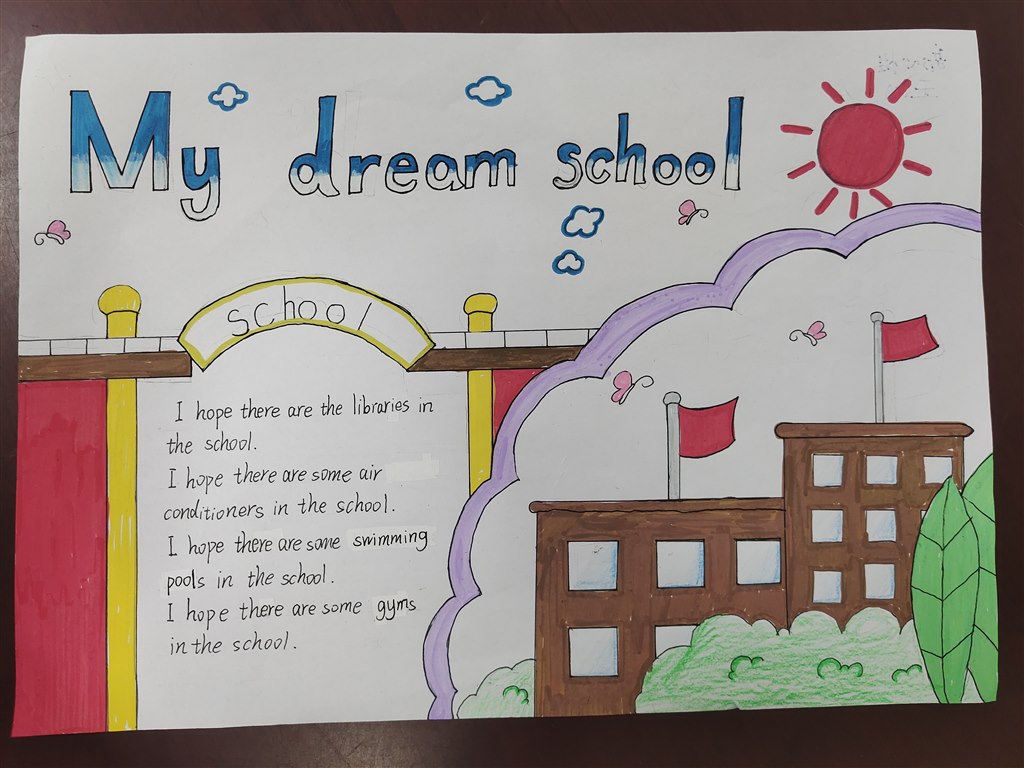 My dream school
school
I hope there are the libraries in
the school.
I hope there are some air
conditioners in the school.
I hope there are some swimming
pools in the school.
I hope there are some gyms
in the school.